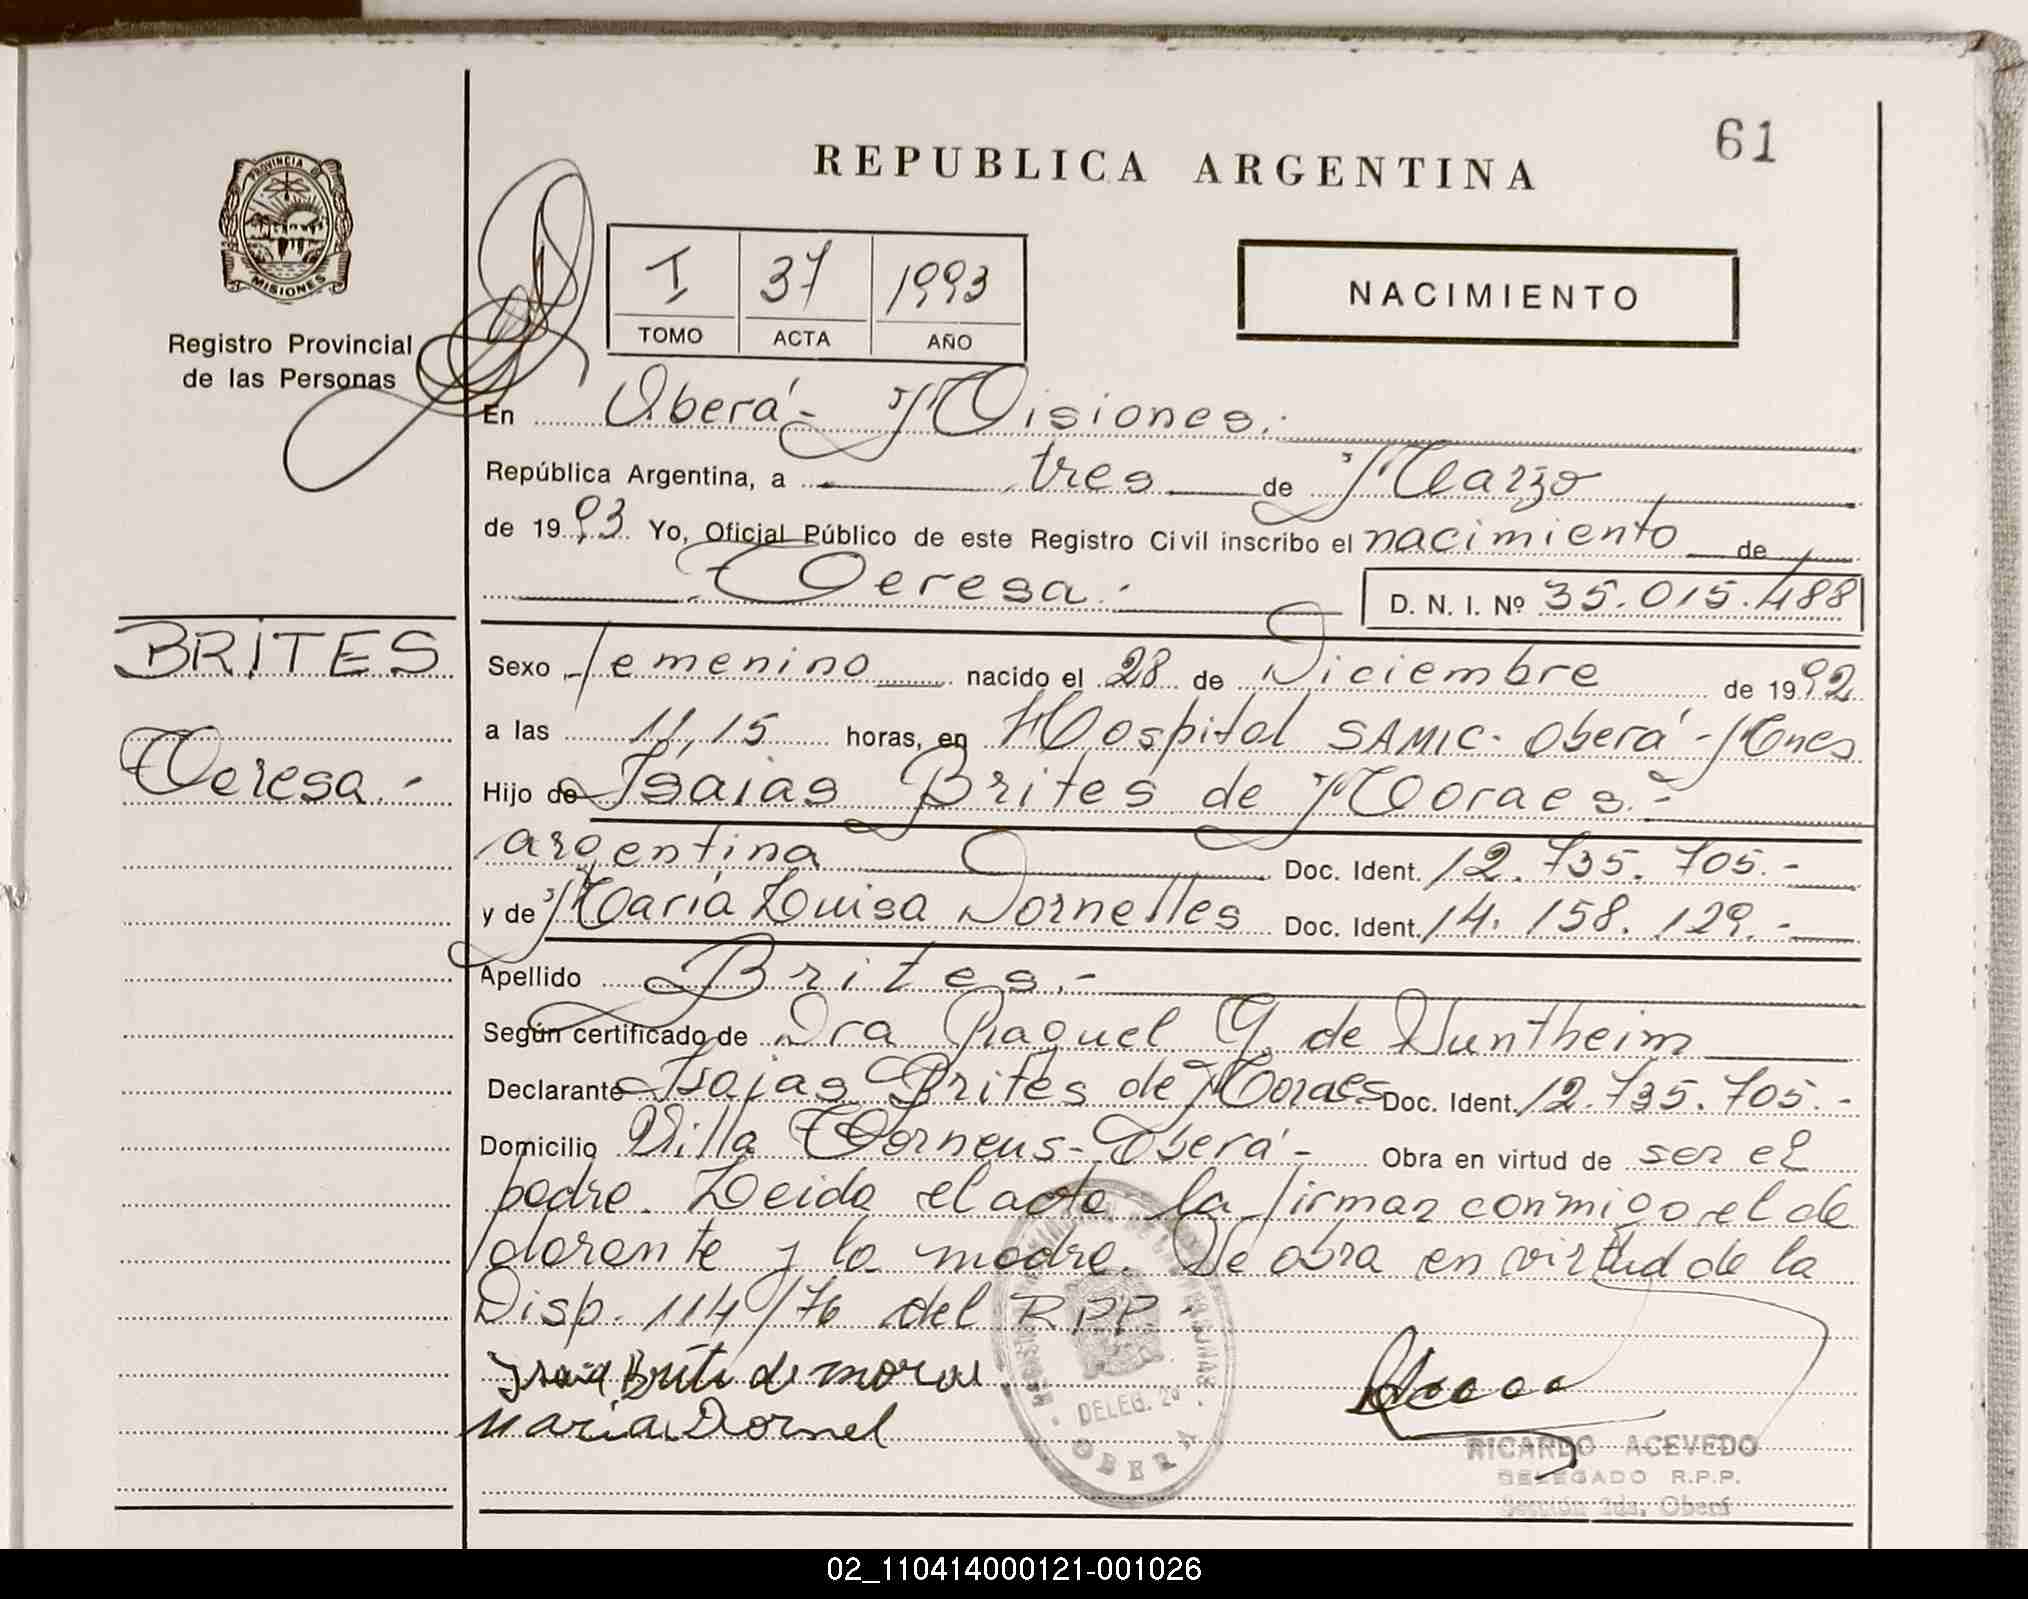 61
REPUBLICA ARGENTINA
PROVINCIA DE
MISIONES
Registro Provincial
de las Personas
I 37 1993
TOMO ACTA AÑO
NACIMIENTO
En Oberá - Misiones.-
República Argentina, a tres de Marzo
de 1993 Yo, Oficial Público de este Registro Civil inscribo el nacimiento de
Teresa.-
D. N. I. Nº 35.015.488
BRITES
Teresa.-
Sexo femenino nacido el 28 de Diciembre de 1992
a las 11,15 horas, en Hospital SAMIC - Oberá - Mnes
Hijo de Isaias Brites de Moraes.-
argentina Doc. Ident. 12.735.705.-
y de María Luisa Dornelles Doc. Ident. 14.158.129.-
Apellido Brites.-
Según certificado de Dra Raquel G. de Wuntheim
Declarante Isaias Brites de Moraes Doc. Ident. 12.735.705.-
Domicilio Villa Torneus - Oberá - Obra en virtud de ser el
padre. Leida el acta la firman conmigo el de
clarante y la madre. Se obra en virtud de la
Disp. 114/76 del RPP.-
Brites de moras
Maria Dornel
DELEG. 2ª
OBERA
RICARDO ACEVEDO
DELEGADO R.P.P.
Sección 2da. Oberá
02_110414000121-001026